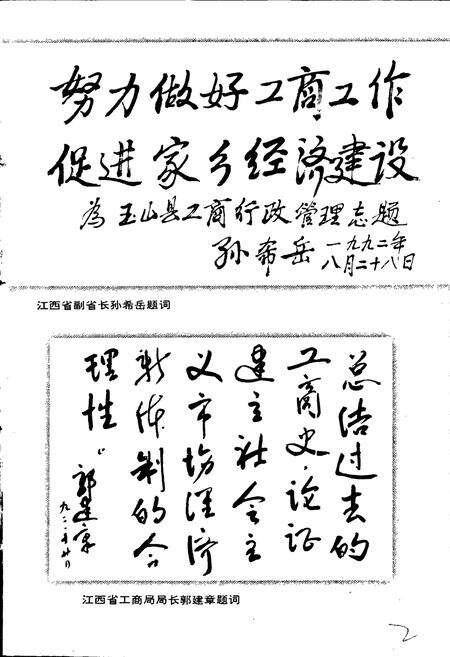 努力做好工商工作
促进家乡经济建设
为玉山县工商行政管理志题
孙希岳 一九九二年
八月二十八日
江西省副省长孙希岳题词
总结过去的
工商史,论证
建立社会主
义市场经济
新体制的合
理性
郭建章
江西省工商局局长郭建章题词
2